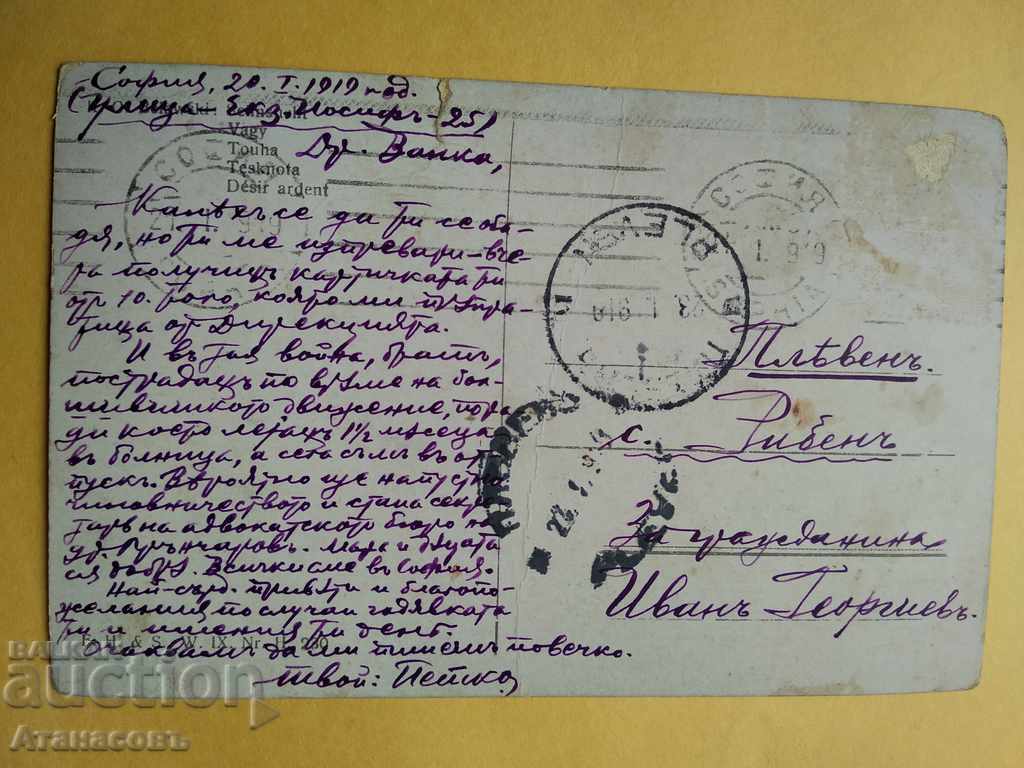 София, 20. I. 1919 год.
(улица Екз. Иосифъ - 25)
Vágy
Touha
Tęsknota
Désir ardent
Др. Ванка,
Канѣхъ се да ти се оба-
дя, но ти ме изпревари – вче-
ра получихъ картичката ти
отъ 10. того, която ми
отъ Дирекцията.
И въ тая война, братъ,
пострадахъ по врѣме на бол-
шевишкото движение, пора-
ди което лежахъ 1½ мѣсеца
въ болница, а сега съмъ въ от-
пускъ. Вѣроятно ще напустна
чиновничеството и стана секре-
таръ на адвокатското бюро на
др. Грънчаровъ. Мара и децата
са добрѣ. Всички сме въ София.
Най-сърд. привѣти и благопо-
желания по случай годявката
ти и имения ти день.
Очаквамъ да ми пишешъ повечко.
Твой: Петко
F. H. & S. W. IX. Nr.
СОФИЯ
СОФИЯ
PLEVEN
23. I. 919
ПЛѢВЕНЪ
22. 1. 919
Плѣвенъ.
с. Рибенъ
За гражданина
Иванъ Георгиевъ.
BALKAN
auction
Атанасовъ